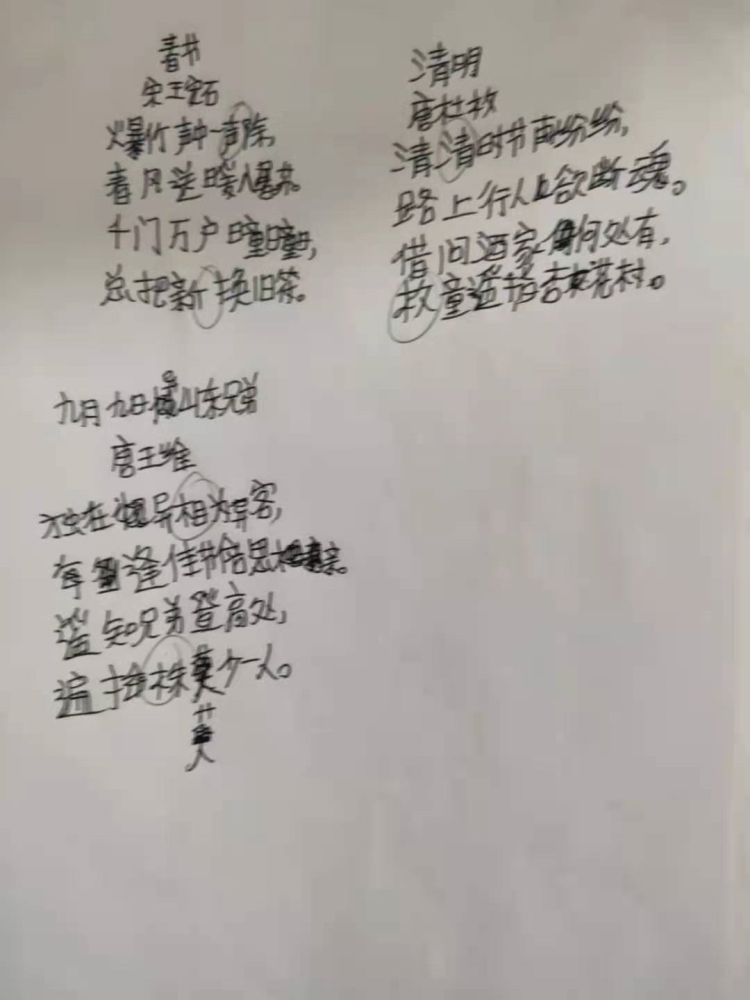 春节
宋王安石
爆竹声中一声除,
春风送暖人屠苏。
千门万户曈曈日,
总把新换旧符。
清明
唐杜枚
清清时节雨纷纷,
路上行人上欲断魂。
借问酒家何处有,
枚童遥指杏花村。
九月九日忆山东兄弟
唐王维
独在异相为异客,
每逢佳节倍思亲。
遥知兄弟登高处,
遍插株萸少一人。